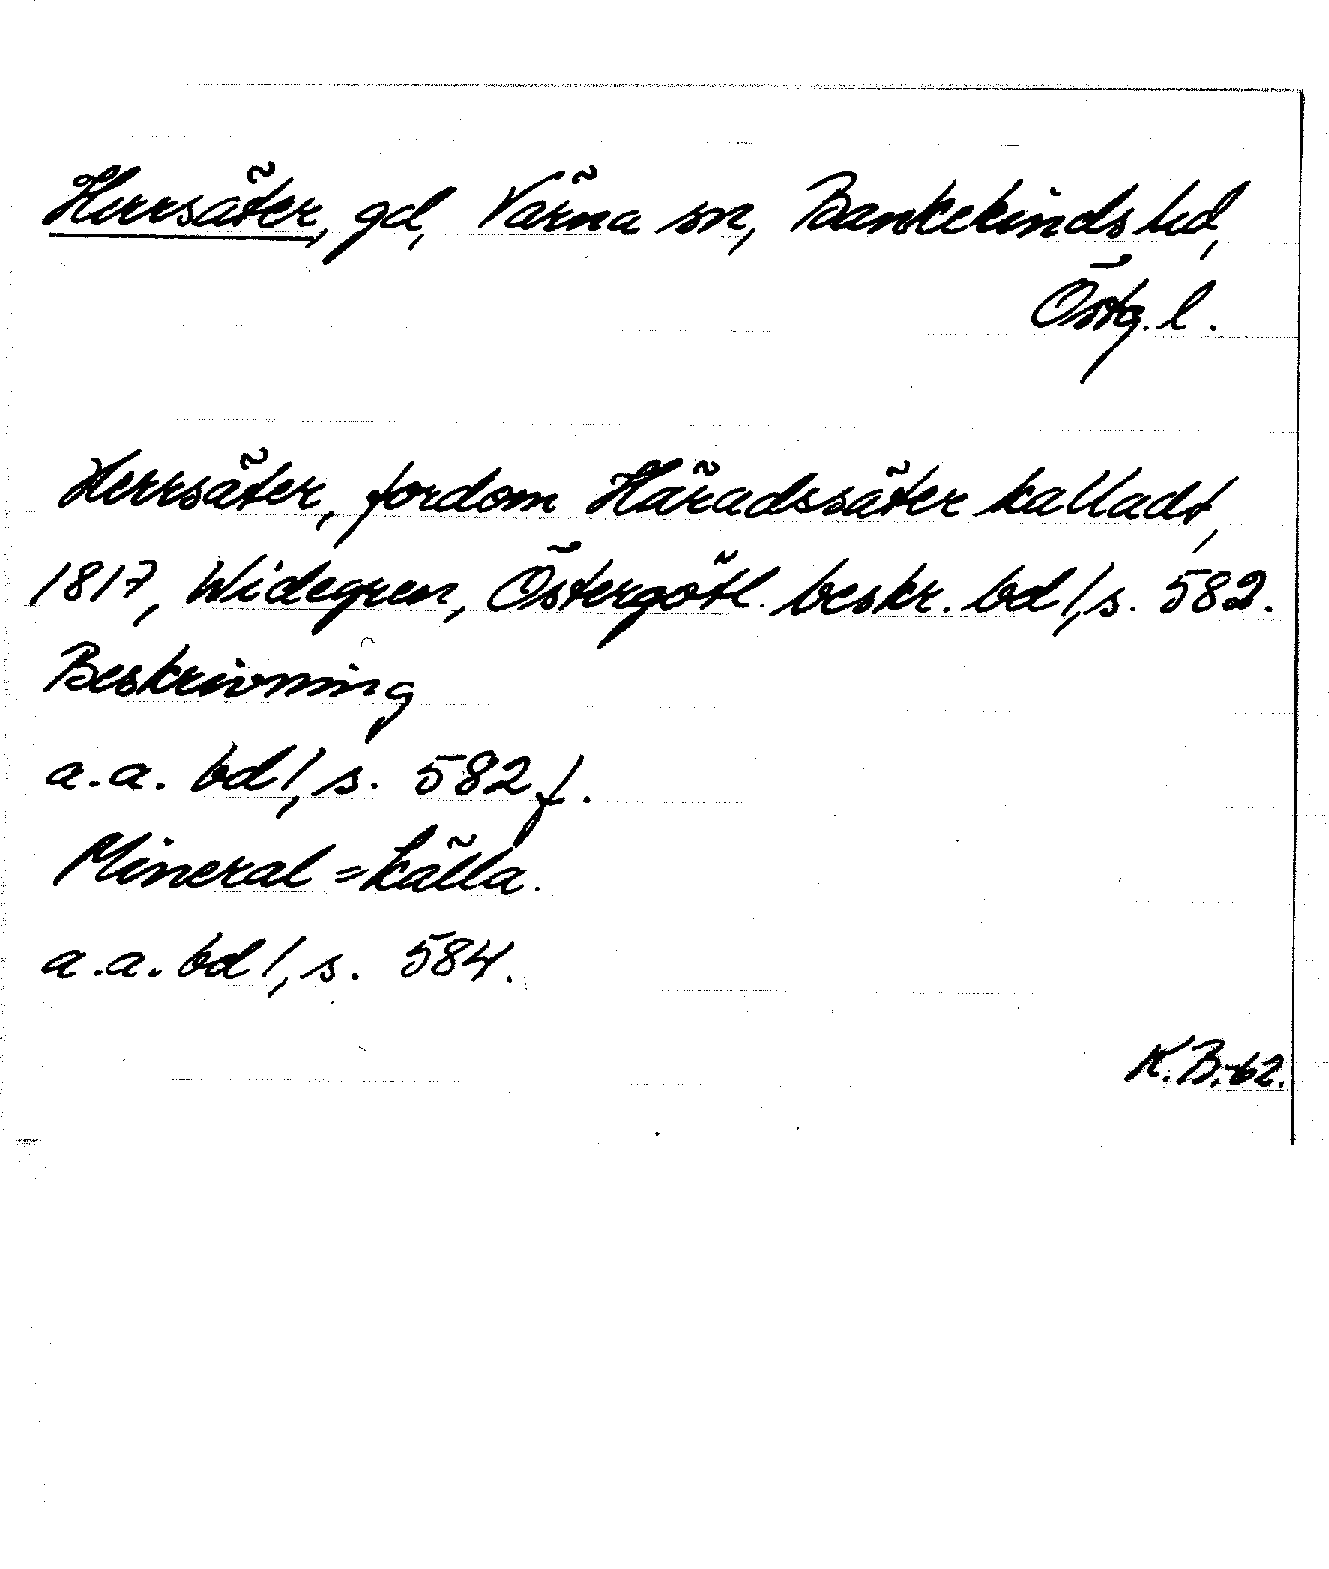 Herrsäter, gd, Värna sn, Bankekinds hd,
Östg. l.
Herrsäter, fordom Häradssäter kalladt,
1817, Widegren, Östergötl. beskr. bd 1, s. 582.
Beskrivning
a.a. bd 1, s. 582 f.
Mineral=källa.
a.a. bd 1, s. 584.
K.B.-62.